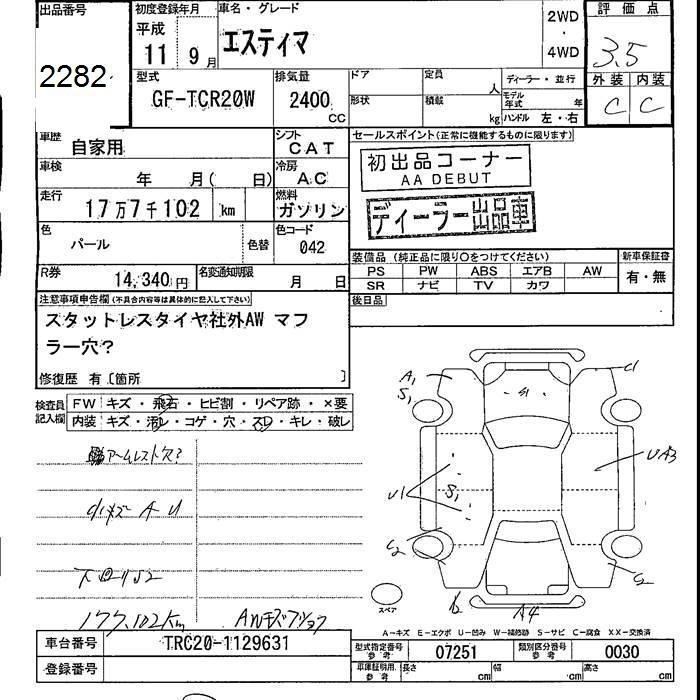 出品番号
2282
初度登録年月
平成
11 9月
車名・グレード
エスティマ
2WD
・
4WD
評価点
3.5
外装 内装
C C
型式
GF-TCR20W
排気量
2400
CC
ドア
定員
人
ディーラー・並行
形状
積載
kg
モデル年式 年
ハンドル 左・右
車歴
自家用
シフト
CAT
セールスポイント(正常に機能するものに限ります)
初出品コーナー
AA DEBUT
ディーラー出品車
車検
年 月( 日)
冷房
AC
走行
17万7千102 km
燃料
ガソリン
色
パール
色替
色コード
042
装備品 (純正品に限り○をつけてください)
新車保証書
PS PW ABS エアB AW
SR ナビ TV カワ
有・無
R券
14,340円
名変通知期限
月 日
後日品
注意事項申告欄(不具合内容等は具体的に記入して下さい)
スタットレスタイヤ社外AW マフ
ラー穴?
修復歴 有〔箇所 〕
検査員記入欄
FW キズ・飛石・ヒビ割・リペア跡・×要
内装 キズ・汚レ・コゲ・穴・スレ・キレ・破レ
アームレスト穴?
小キズ A U
下回りS2
177,102Km
A1
S1
S1
U1
S1
C2
C1
UA3
C2
A4
スペア
A-キズ E-エクボ U-凹み W-補修跡 S-サビ C-腐食 XX-交換済
車台番号
TRC20-1129631
登録番号
型式指定番号
参考
07251
類別区分番号
参考
0030
車庫証明用
参考
長さ cm
幅 cm
高さ cm